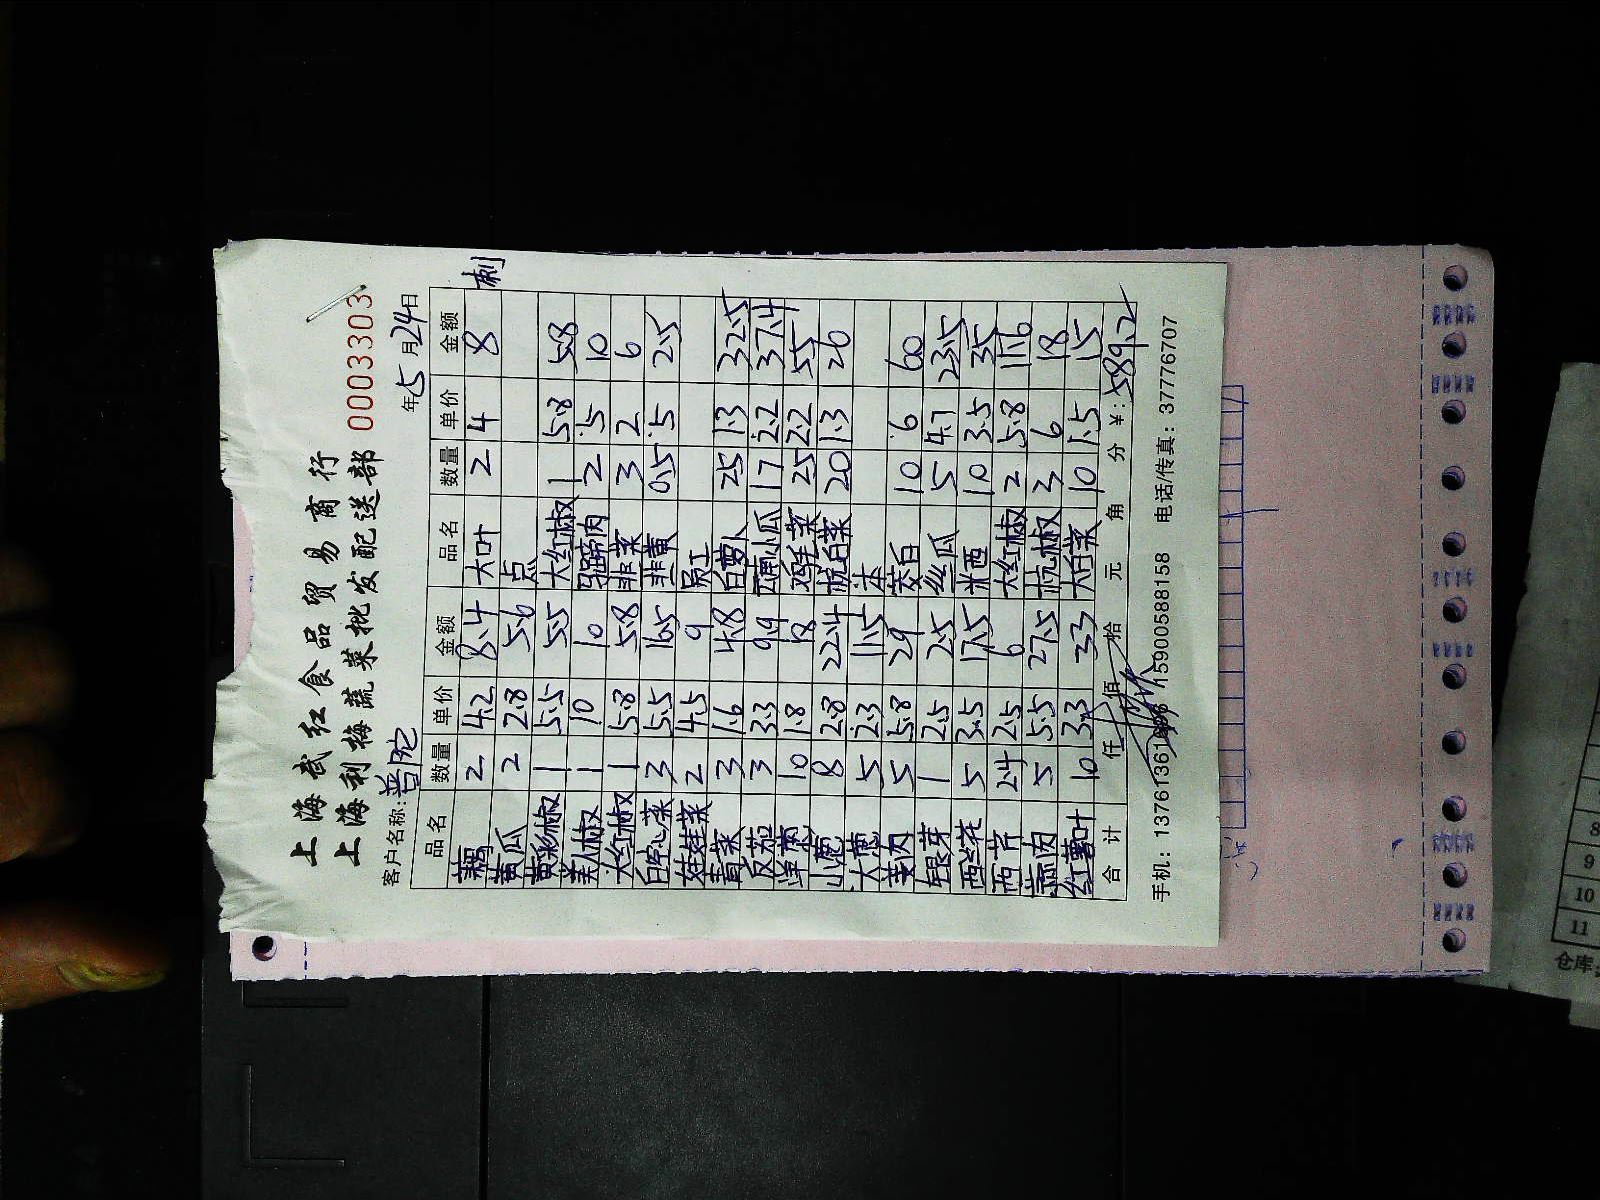 上海武红食品贸易商行
上海利梅蔬菜批发配送部 0003303
客户名称: 普陀 年 5 月 24 日
品名 数量 单价 金额 品名 数量 单价 金额
藕 2 4.2 8.4 大叶 2 4 8 刺
黄瓜 2 2.8 5.6 点
黄彩椒 1 5.5 5.5 大红椒 1 5.8 5.8
美人椒 1 10 10 2 5 10
大红椒 1 5.8 5.8 韭菜 3 2 6
白空心菜 3 5.5 16.5 韭黄 0.5 5 2.5
娃娃菜 2 4.5 9
青菜 3 1.6 4.8 白萝卜 25 1.3 32.5
反茄 3 3.3 9.9 西南小瓜 17 2.2 37.4
洋葱 10 1.8 18 鸡毛菜 25 2.2 55
小葱 8 2.8 22.4 杭白菜 20 1.3 26
大葱 5 2.3 11.5 本
姜肉 5 5.8 29 茭白 10 6 60
银芽 1 2.5 2.5 丝瓜 5 4.7 23.5
西兰花 5 3.5 17.5 米西 10 3.5 35
西芹 2.4 2.5 6 大红椒 2 5.8 11.6
莴肉 5 5.5 27.5 杭椒 3 6 18
红薯叶 10 3.3 33 大白菜 10 1.5 15
合计 仟 佰 拾 元 角 分 ¥: 589.2
手机: 15900588158 电话/传真: 37776707
8
9
10
11
仓库: